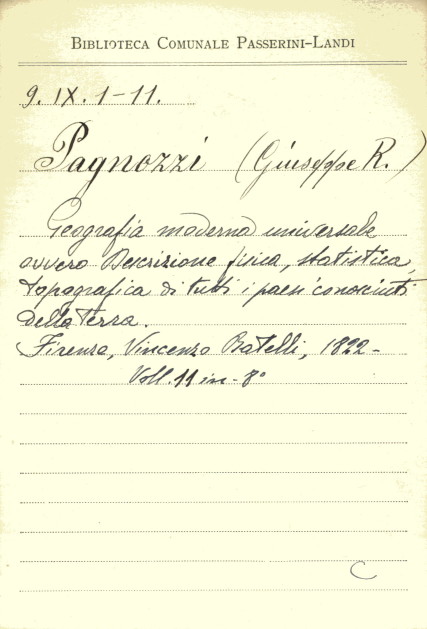 BIBLIOTECA COMUNALE PASSERINI-LANDI
9. IX. 1-11.
Pagnozzi (Giuseppe R.)
Geografia moderna universale
ovvero Descrizione fisica, statistica,
topografica di tutti i paesi conosciuti
della Terra.
Firenze, Vincenzo Batelli, 1822-
Voll. 11 in-8°
C